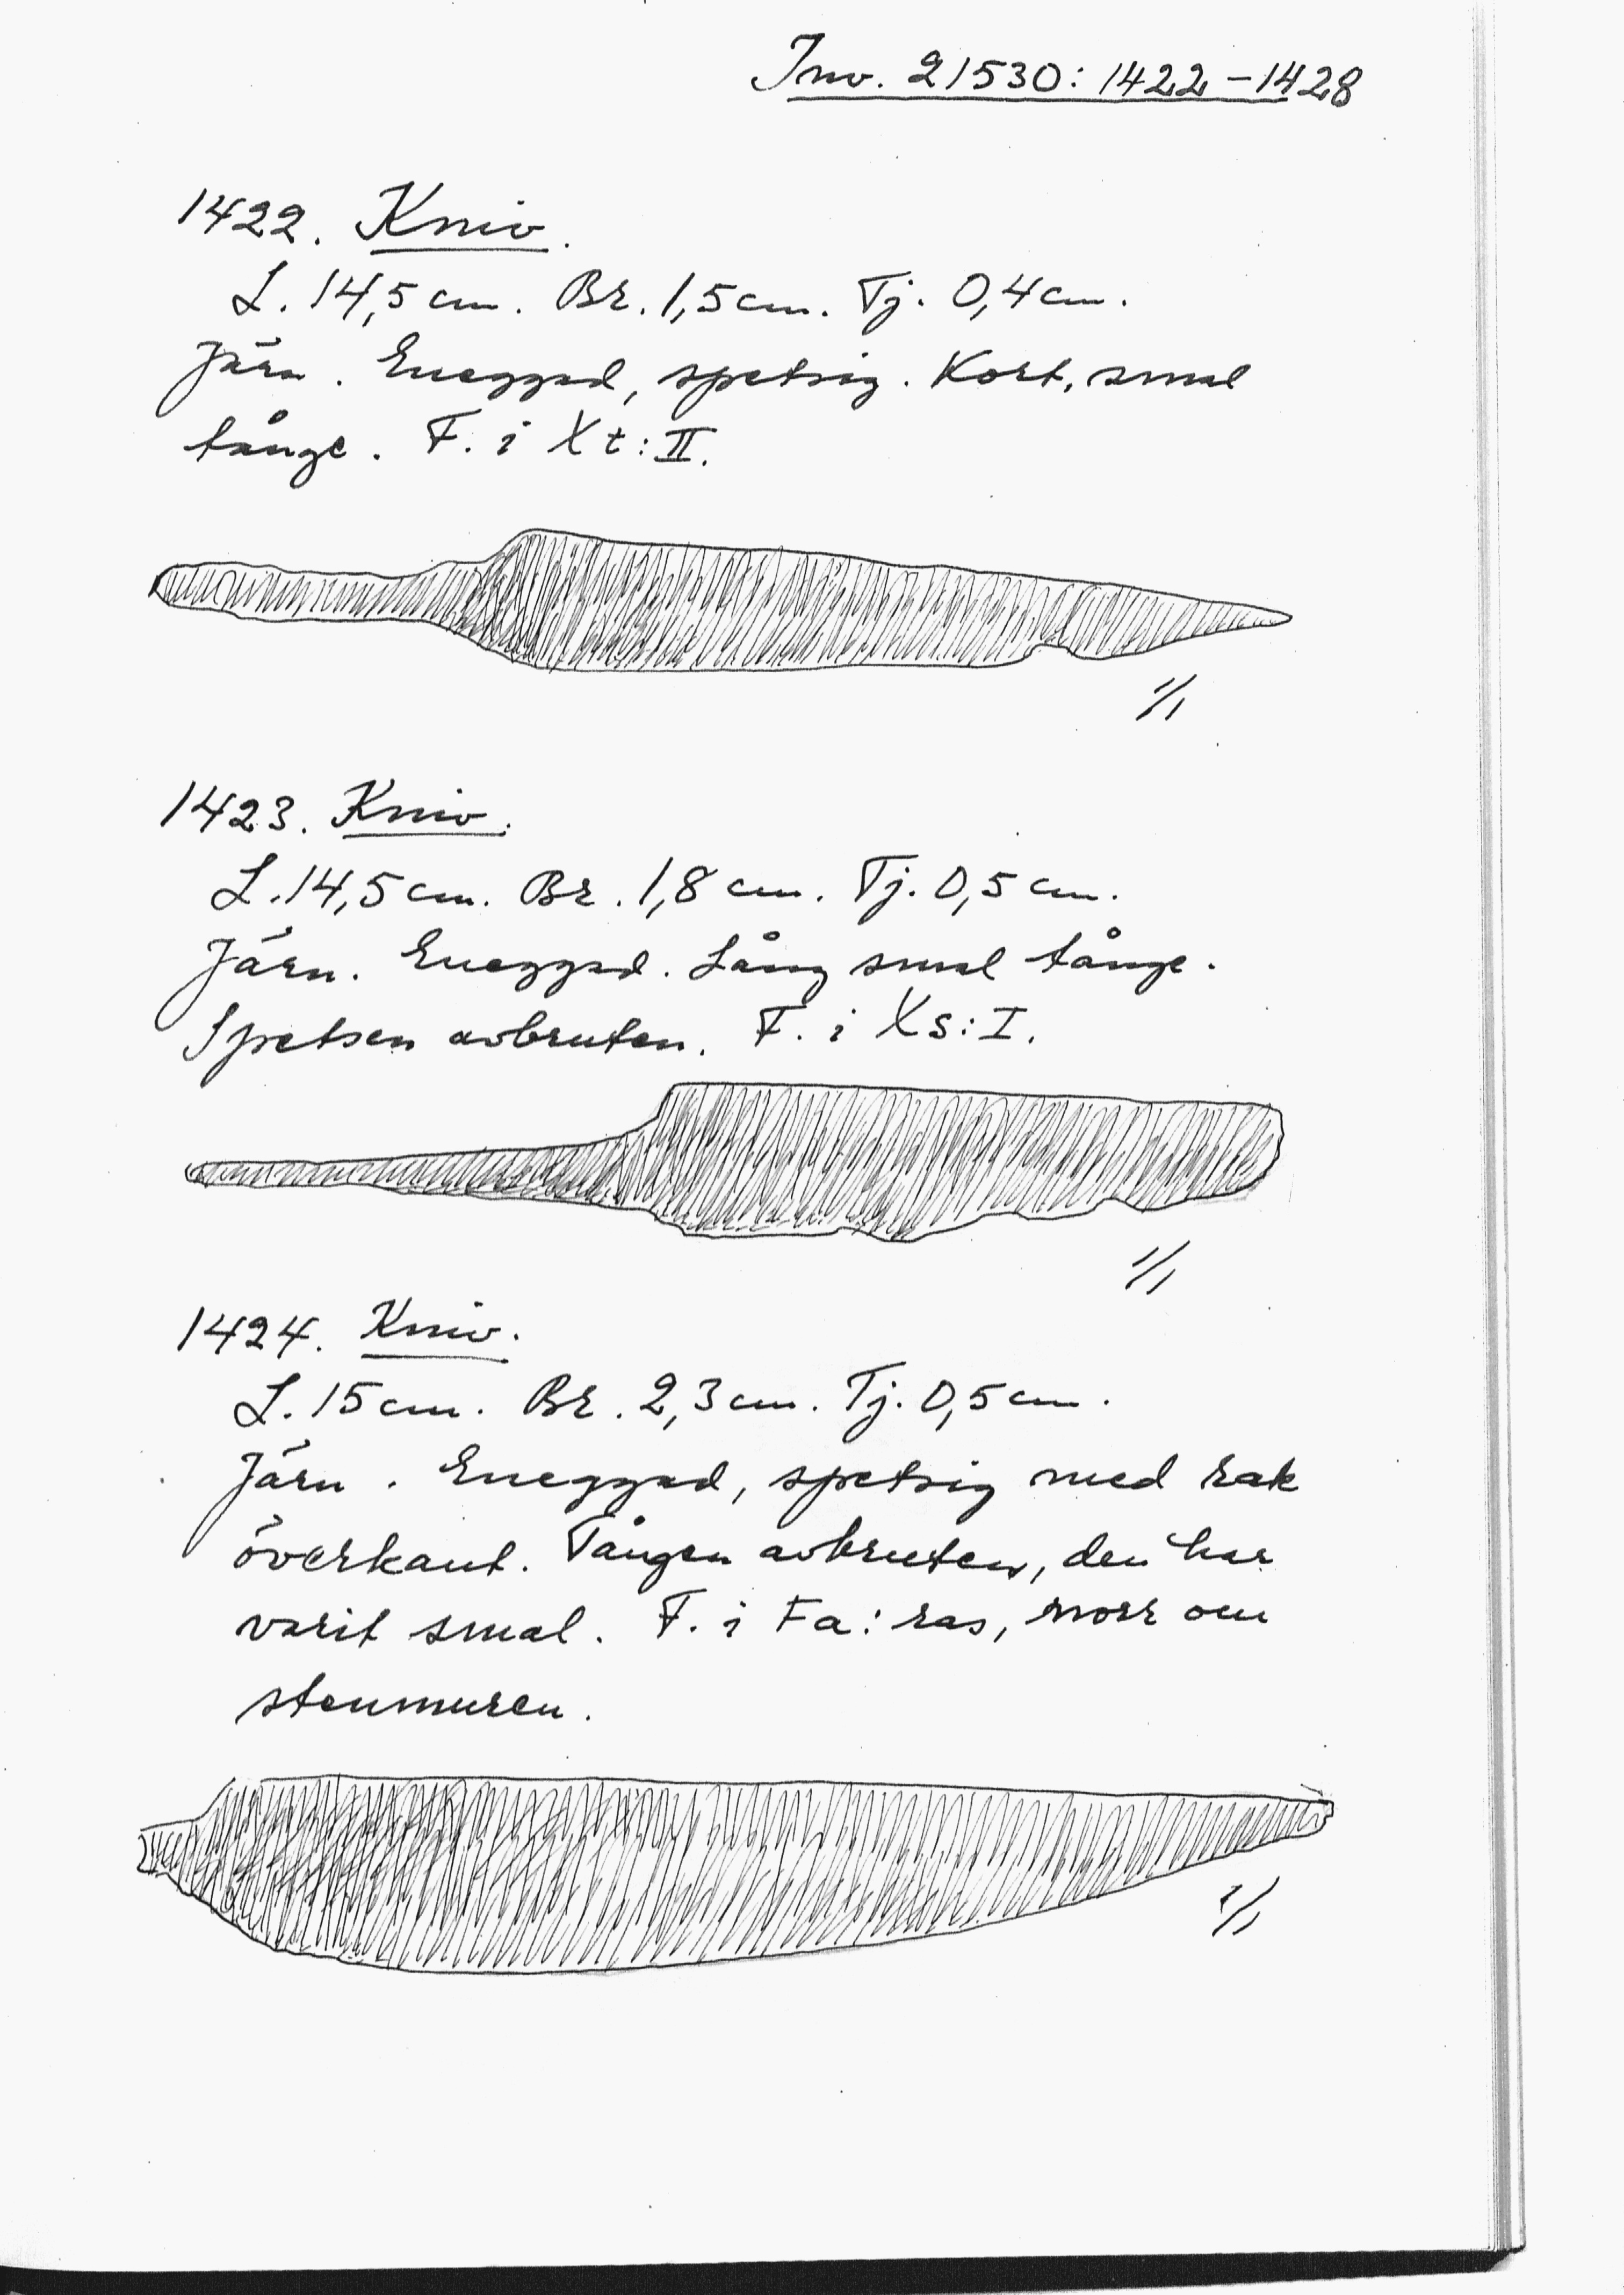 Inv. 21530: 1422-1428
1422. Kniv.
L. 14,5 cm. Br. 1,5 cm. Tj. 0,4 cm.
Järn. Eneggad, spetsig. Kort, smal
tånge. F. i Xt: II.
1/1
1423. Kniv.
L. 14,5 cm. Br. 1,8 cm. Tj. 0,5 cm.
Järn. Eneggad. Lång smal tånge.
Spetsen avbruten. F. i Xs: I.
1/1
1424. Kniv.
L. 15 cm. Br. 2,3 cm. Tj. 0,5 cm.
Järn. Eneggad, spetsig med rak
överkant. Tången avbruten, den har
varit smal. F. i Fa: ras, norr om
stenmuren.
1/1